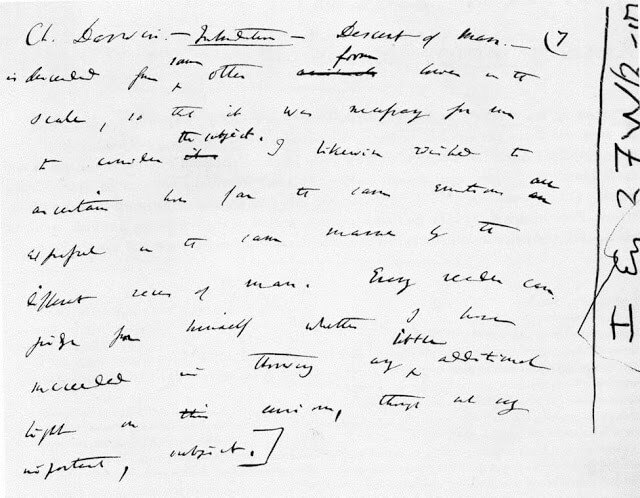 Ch. Darwin. — Introduction — Descent of Man. — (7
is descended from some other ~~animals~~ form lower in the
scale, so that it was necessary for me
to consider ~~it~~ the subject. I likewise wished to
ascertain how far the same emotions ~~are~~ are
expressed in the same manner by the
different races of man. Every reader can
judge for himself whether I have
succeeded in throwing any little additional
light on ~~this~~ curious, though not very
important, subject.]